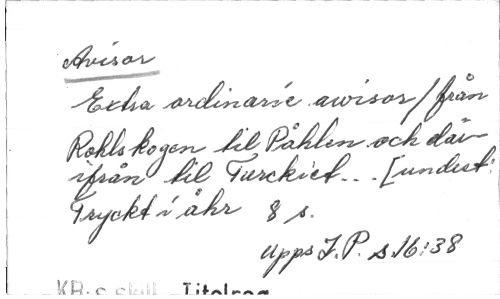 Avisor
Extra ordinarie awisor / från
Rohlskogen til Påhlen och där-
ifrån til Turckiet... [undert:
Tryckt i åhr 8 s.
Upps J. P. s. 16:38
KB:s Titelreg